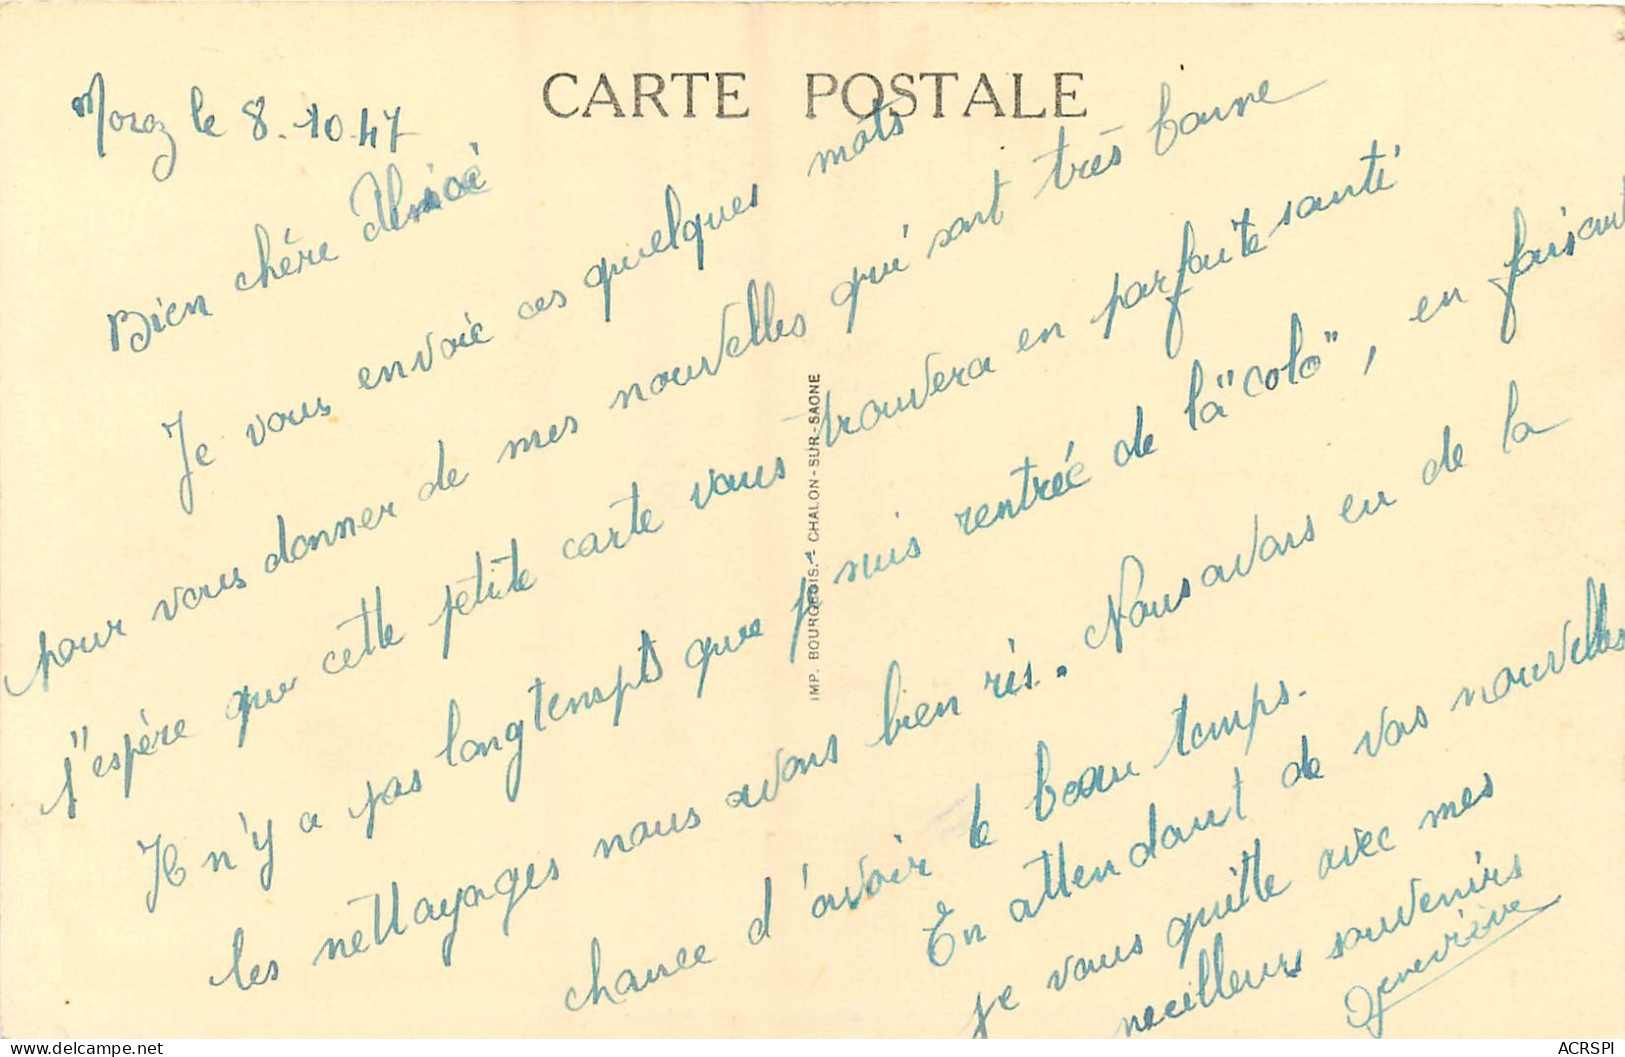 CARTE POSTALE
Morez le 8.10.47
Bien chère
Je vous envoie ces quelques mots
pour vous donner de mes nouvelles qui sont très bonne
j'espère que cette petite carte vous trouvera en parfaite santé
Il n'y a pas longtemps que je suis rentrée de la "colo", en faisant
les nettoyages nous avons bien ris. Nous avons eu de la
chance d'avoir le beau temps.
En attendant de vos nouvelles
je vous quitte avec mes
meilleurs souvenirs
Geneviève
IMP. BOURGEOIS. - CHALON-SUR-SAONE
ACRSPI